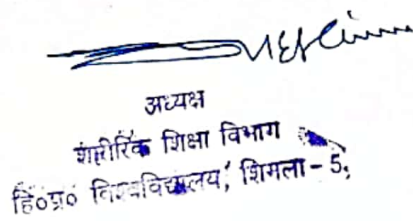 अध्यक्ष
शारीरिक शिक्षा विभाग
हि०प्र० विश्वविद्यालय, शिमला - 5,